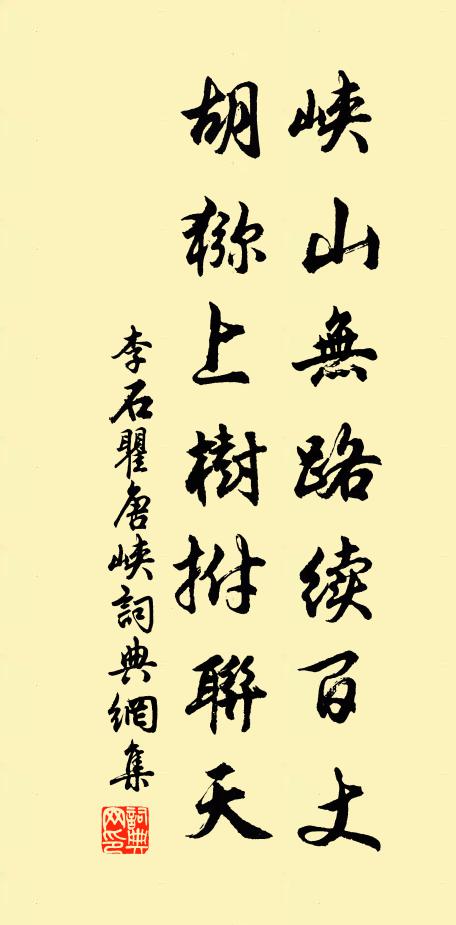 峡山無路续百丈
胡猕上樹拊聯天
李石瞿唐峡詞典網集
詞典网印